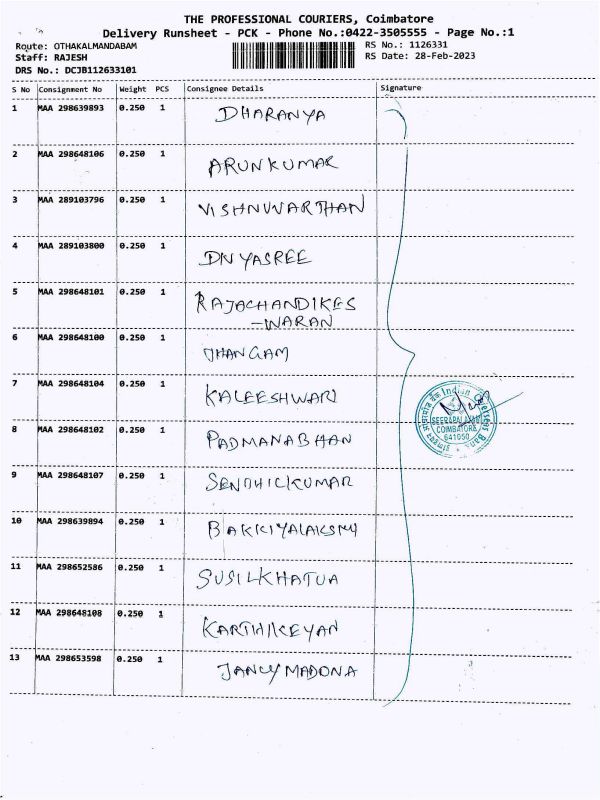 THE PROFESSIONAL COURIERS, Coimbatore
Delivery Runsheet - PCK - Phone No.:0422-3505555 - Page No.:1
Route: OTHAKALMANDABAM RS No.: 1126331
Staff: RAJESH RS Date: 28-Feb-2023
DRS No.: DCJB112633101
S No Consignment No Weight PCS Consignee Details Signature
1 MAA 298639893 0.250 1 DHARANYA
2 MAA 298648106 0.250 1 ARUNKUMAR
3 MAA 289103796 0.250 1 VISHNUVARTHAN
4 MAA 289103800 0.250 1 DNYASREE
5 MAA 298648101 0.250 1 RAJACHANDIKES
-WARAN
6 MAA 298648100 0.250 1 THANGAM
7 MAA 298648104 0.250 1 KALEESHWARI
8 MAA 298648102 0.250 1 PADMANABHAN
9 MAA 298648107 0.250 1 SENTHILKUMAR
10 MAA 298639894 0.250 1 BAKKIYALAKSMI
11 MAA 298652586 0.250 1 SUSILKHATUA
12 MAA 298648108 0.250 1 KARTHIKEYAN
13 MAA 298653598 0.250 1 JANCYMADONA
Indian Overseas Bank
SEERAPALAYAM
COIMBATORE
641050